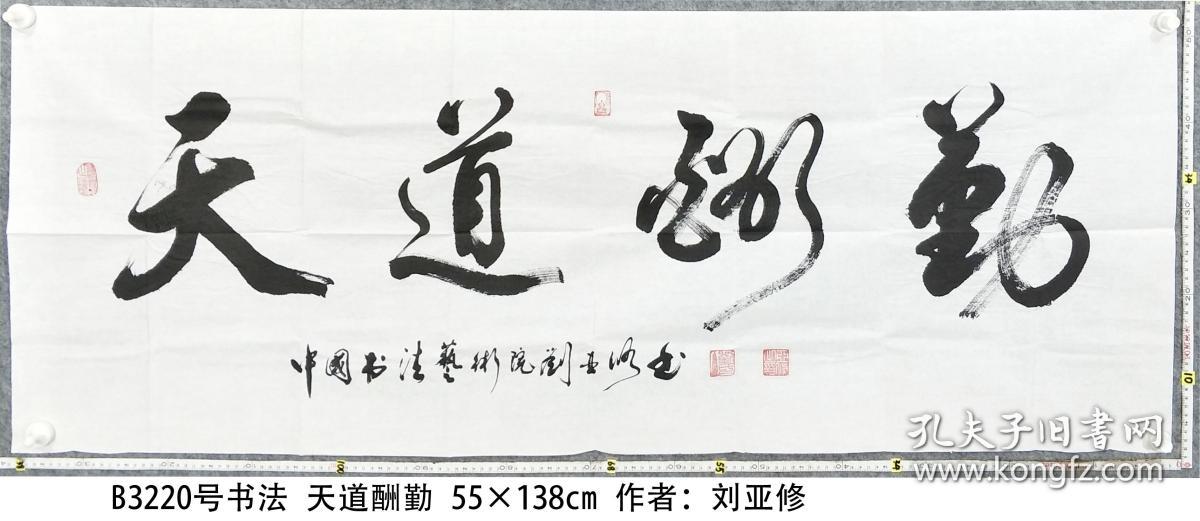 天道酬勤
中國书法藝術院劉亚修书
孔夫子旧書网
www.kongfz.com
B3220号书法 天道酬勤 55×138cm 作者：刘亚修